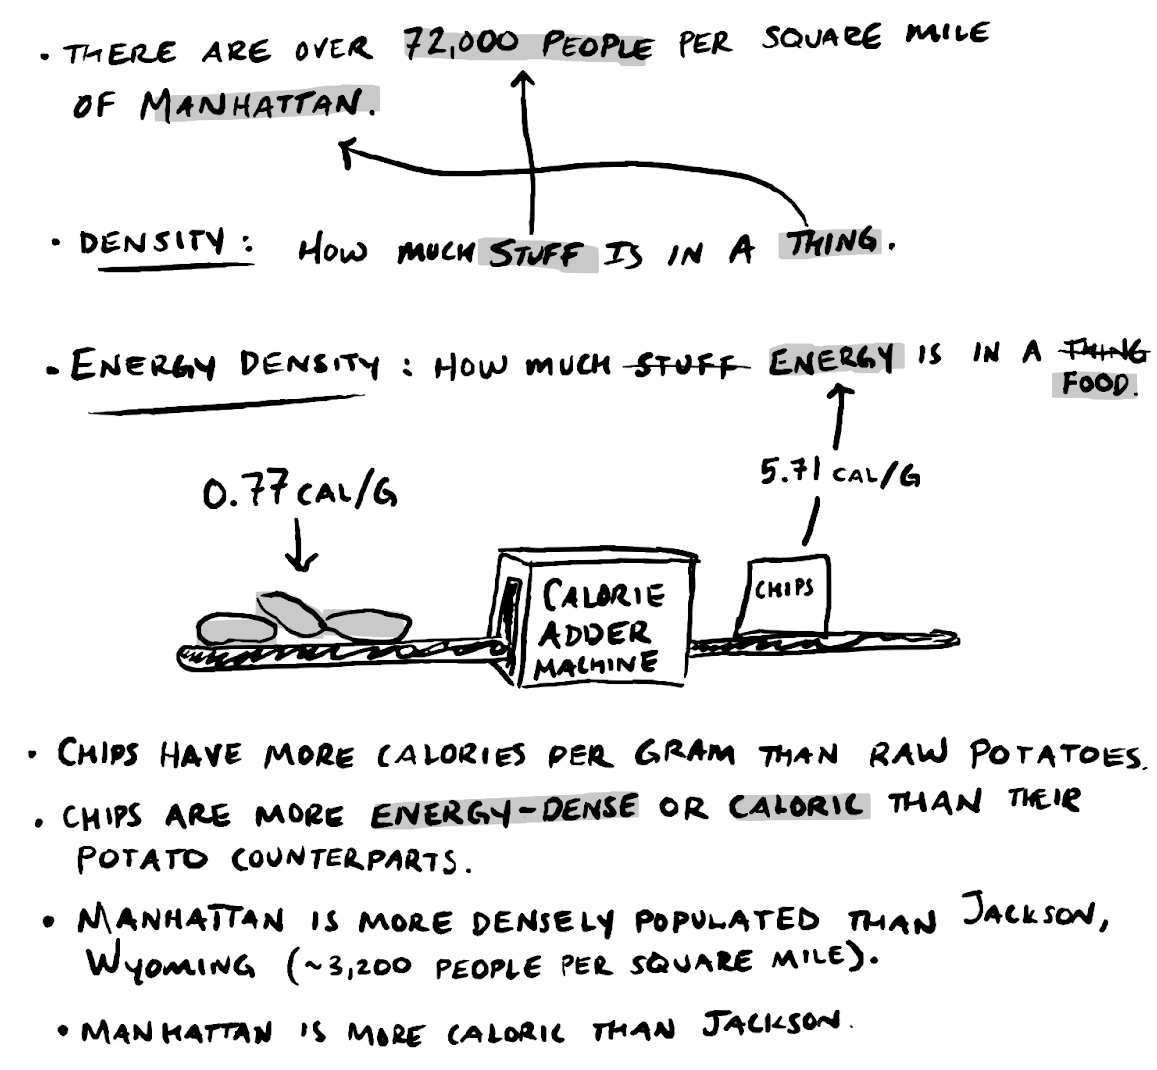 • THERE ARE OVER 72,000 PEOPLE PER SQUARE MILE
OF MANHATTAN.
• DENSITY: HOW MUCH STUFF IS IN A THING.
• ENERGY DENSITY: HOW MUCH STUFF ENERGY IS IN A THING
FOOD.
0.77 CAL/G
5.71 CAL/G
CALORIE
ADDER
MACHINE
CHIPS
• CHIPS HAVE MORE CALORIES PER GRAM THAN RAW POTATOES.
• CHIPS ARE MORE ENERGY-DENSE OR CALORIC THAN THEIR
POTATO COUNTERPARTS.
• MANHATTAN IS MORE DENSELY POPULATED THAN JACKSON,
WYOMING (~3,200 PEOPLE PER SQUARE MILE).
• MANHATTAN IS MORE CALORIC THAN JACKSON.